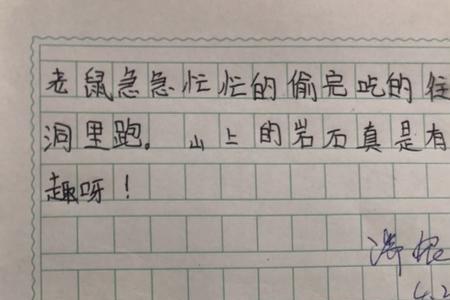 老鼠急急忙忙的偷完吃的往
洞里跑。山上的岩石真是有
趣呀!